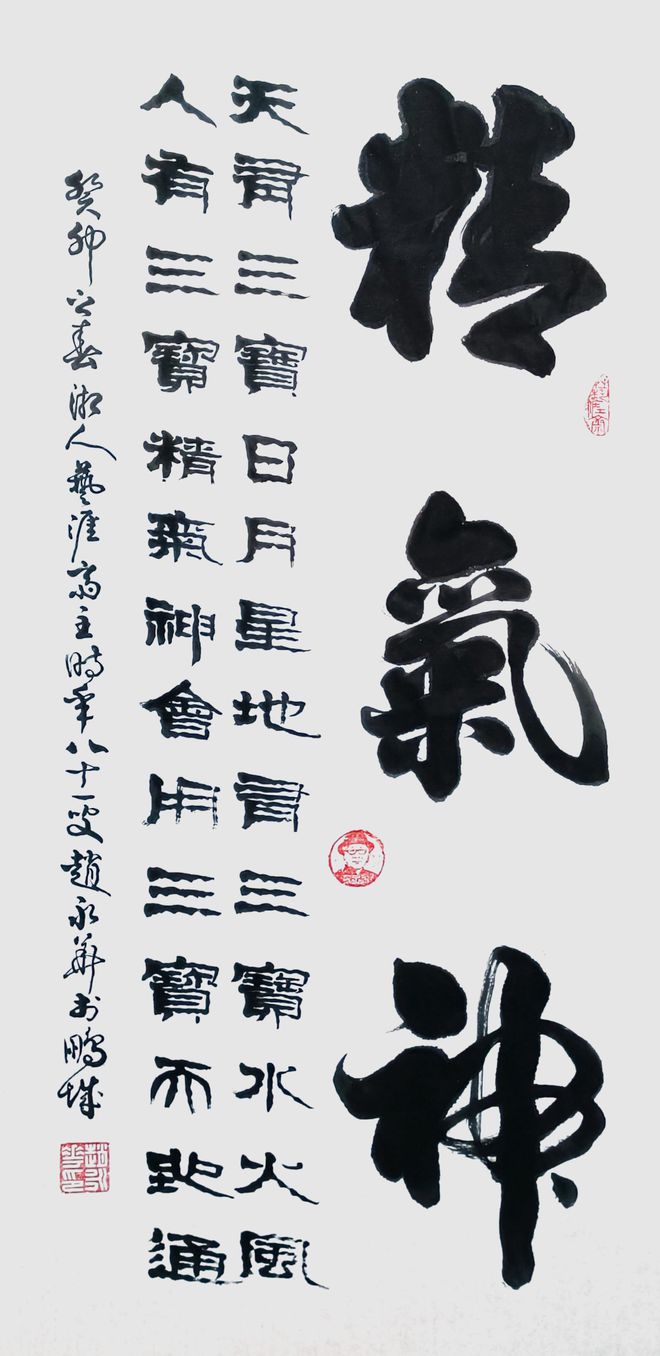 精氣神
天有三寶日月星地有三寶水火風
人有三寶精氣神會用三寶天地通
癸卯之春湘人藝涯齋主時年八十一叟趙永華於鵬城